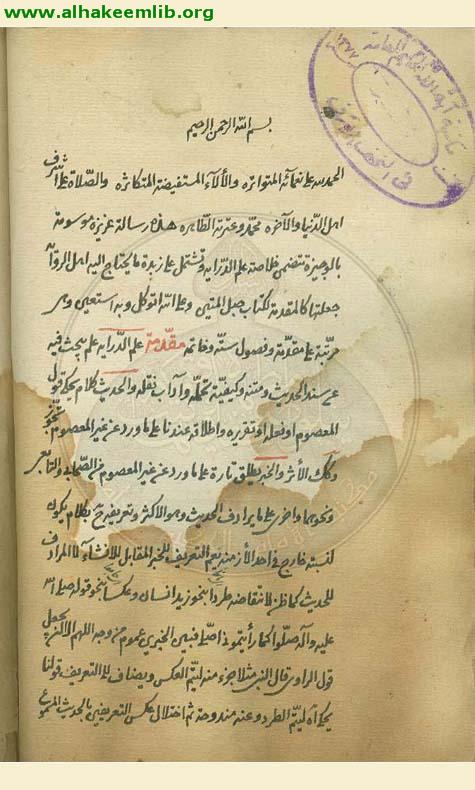 www.alhakeemlib.org
بسم الله الرحمن الرحيم
الحمد لله على نعمائه المتواتره والآلاء المستفيضة المتكاثره والصلاة على اشرف
اهل الدنيا والآخره محمد وعترته الطاهره هذه رسالة عزيزة موسومة
بالوجيزة تتضمن خلاصة علم الدراية وتشتمل على زبدة ما يحتاج اليه اهل الرواية
جعلتها كالمقدمة لكتاب حبل المتين وعلى الله اتوكل وبه استعين وهى
مرتبة على مقدمة وفصول ستة وخاتمة مقدمة علم الدراية علم يبحث فيه
عن سند الحديث ومتنه وكيفية تحمله وآداب نقله والحديث كلام يحكى قول
المعصوم او فعله او تقريره واطلاقه عندنا على ما ورد عن غير المعصوم تجوز
وكذلك الأثر والخبر يطلق تارة على ما ورد عن غير المعصوم من الصحابى والتابعى
ونحوهما واخرى على ما يرادف الحديث وهو الاكثر وتعريفه ح بكلام يكون
لنسبته خارج فى احد الأزمنه يعم التعريف للخبر المقابل للانشاء لا المرادف
للحديث كما ظن لانتقاضه طردا بنحو زيد انسان وعكسا بنحو قوله صلى الله
عليه وآله صلوا كما رأيتمونى اصلى فبين الخبرين عموم من وجه اللهم الا ان يجعل
قول الراوى قال النبى مثلا جزء منه ليتم العكس ويضاف الى التعريف قولنا
يحكى آه ليتم الطرد وعنه مندوحة ثم اختلال عكس التعريفين بالحديث المسموع